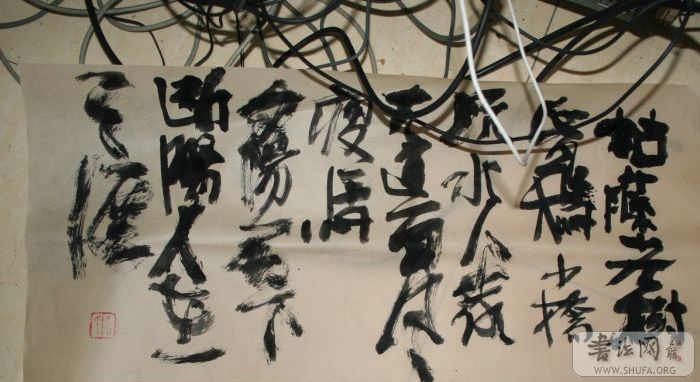 枯藤老樹
昏鴉小橋
流水人家
古道西風
瘦馬
夕陽西下
断腸人在
天涯
書法网
WWW.SHUFA.ORG